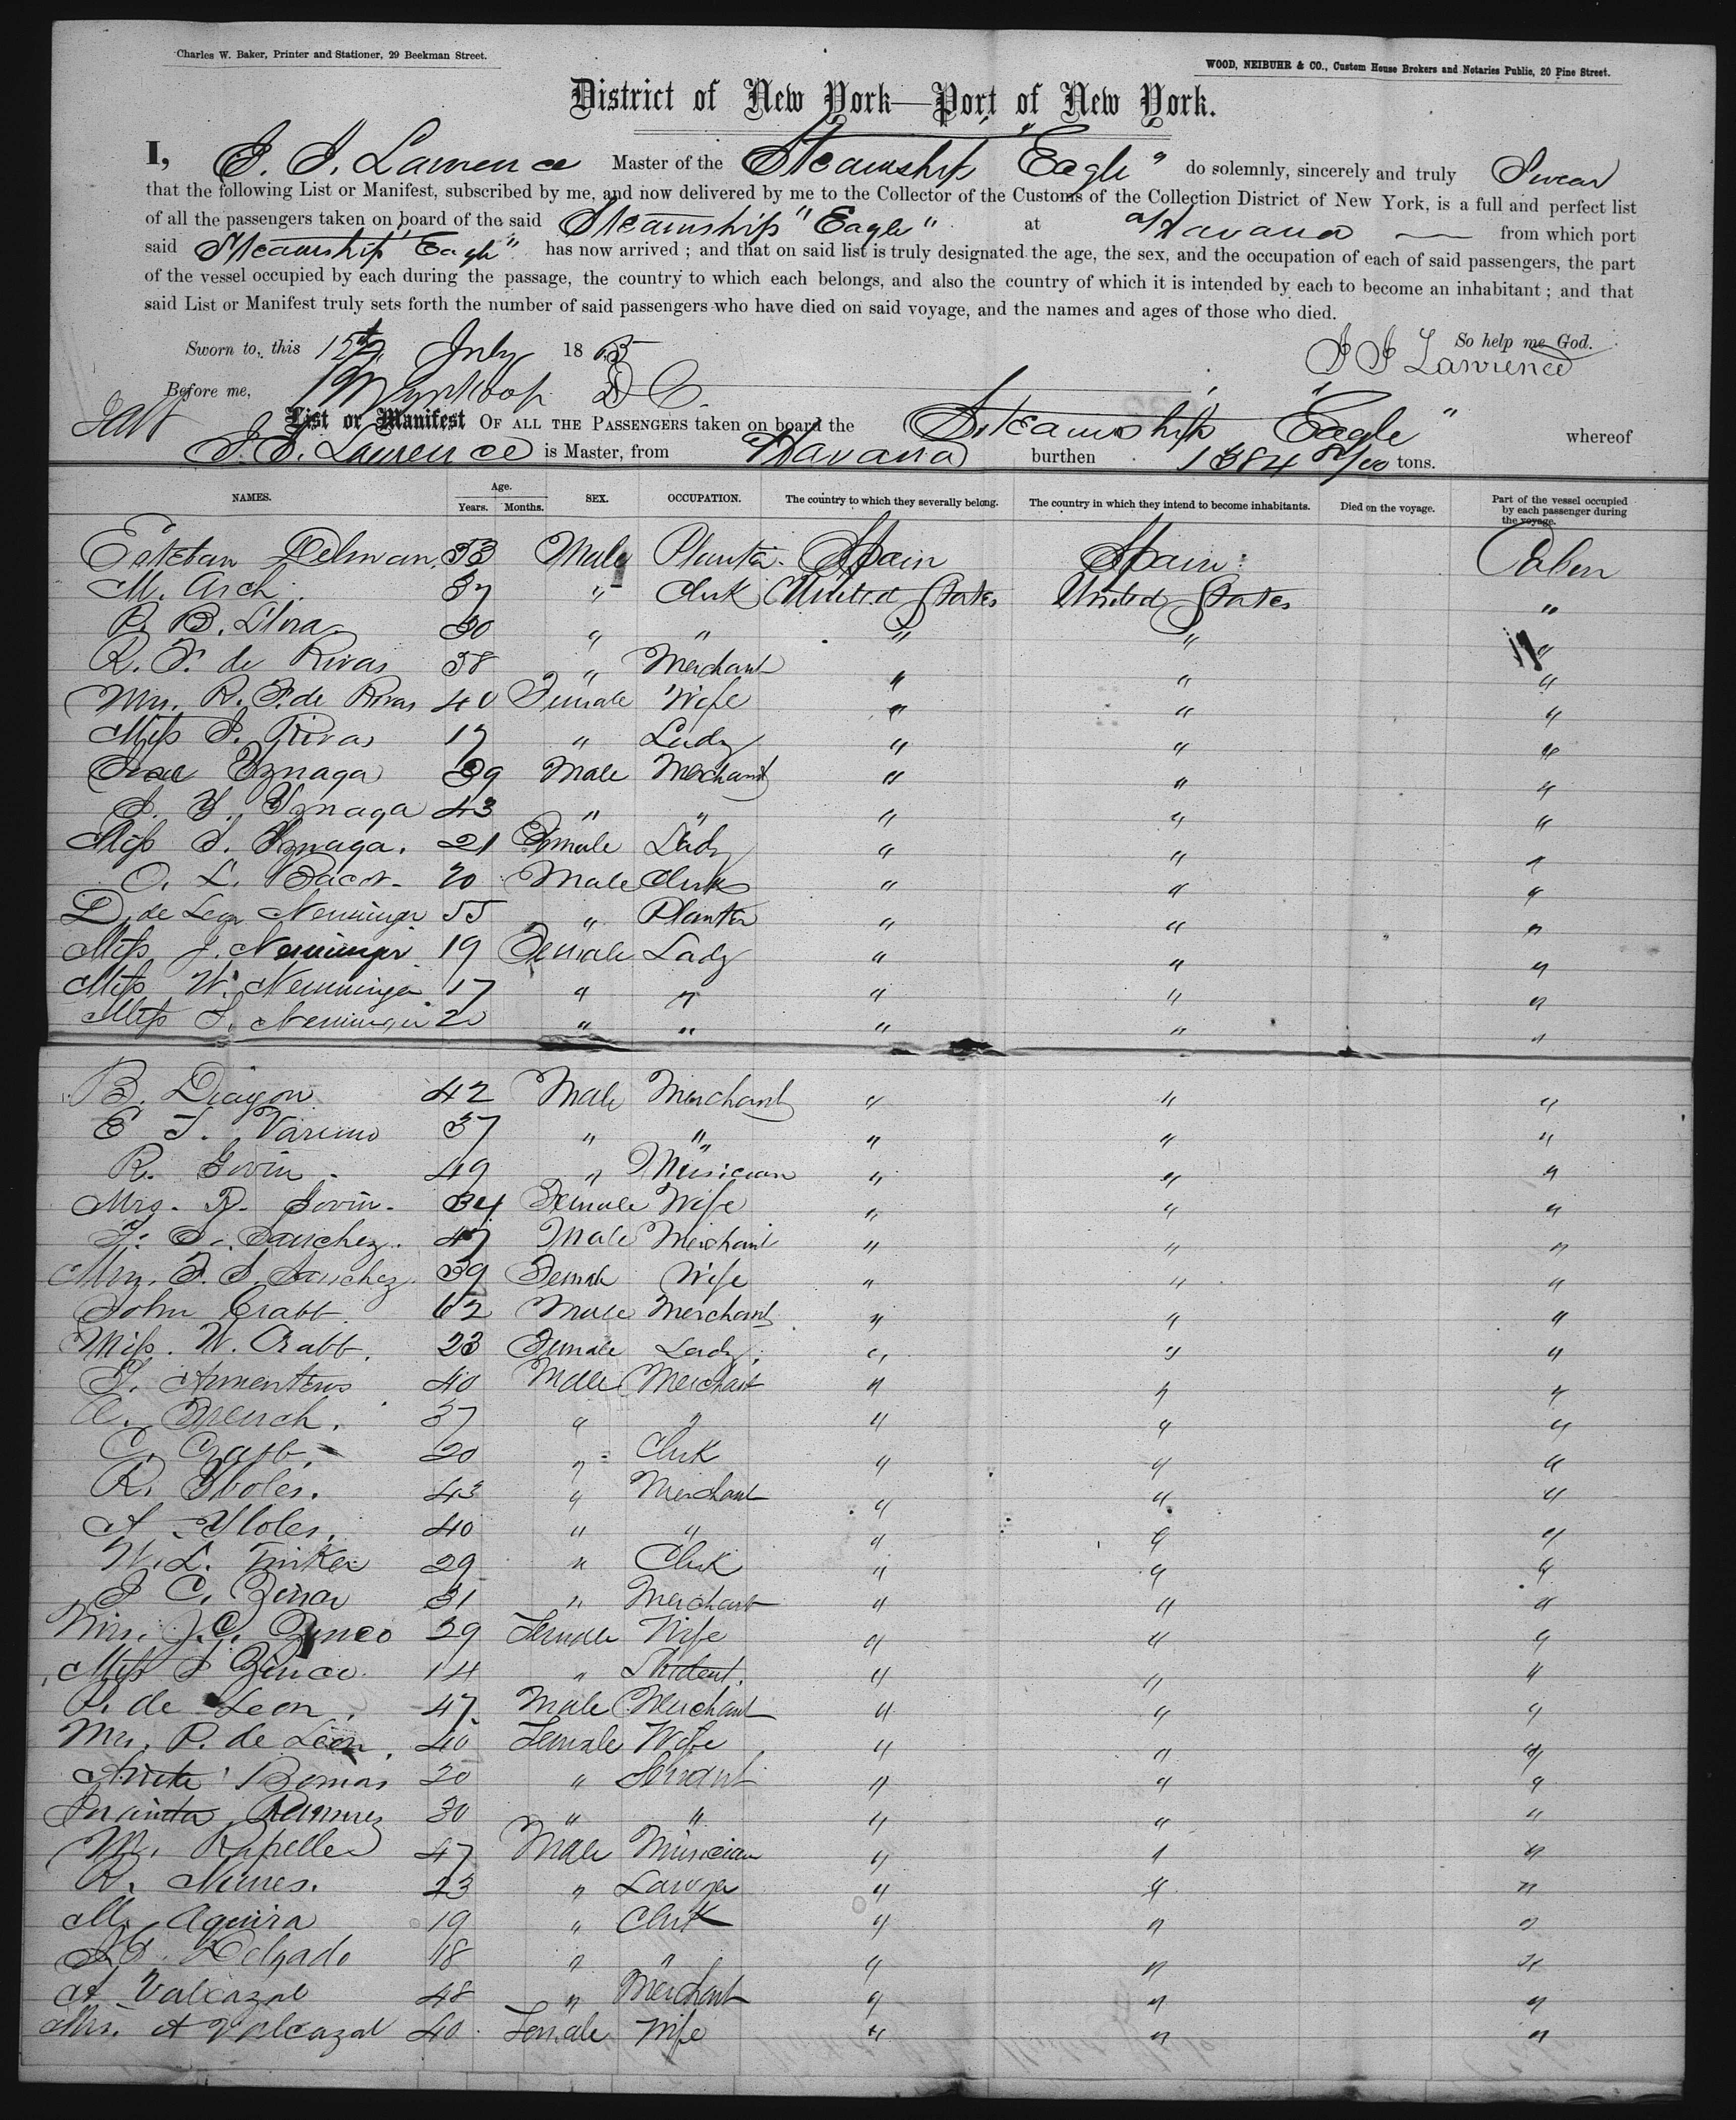 Charles W. Baker, Printer and Stationer, 29 Beekman Street.
WOOD, NEIBUHR & CO., Custom House Brokers and Notaries Public, 20 Pine Street.
District of New York—Port of New York.
I, Lawrence Master of the Steamship "Eagle" do solemnly, sincerely and truly Swear
that the following List or Manifest, subscribed by me, and now delivered by me to the Collector of the Customs of the Collection District of New York, is a full and perfect list
of all the passengers taken on board of the said Steamship "Eagle" at Havana — from which port
said Steamship "Eagle" has now arrived ; and that on said list is truly designated the age, the sex, and the occupation of each of said passengers, the part
of the vessel occupied by each during the passage, the country to which each belongs, and also the country of which it is intended by each to become an inhabitant ; and that
said List or Manifest truly sets forth the number of said passengers who have died on said voyage, and the names and ages of those who died.
So help me God.
Sworn to, this 15th July 18 Lawrence
Before me, D C.
List or Manifest OF ALL THE PASSENGERS taken on board the Steamship "Eagle" whereof
Lawrence is Master, from Havana burthen 1384 tons.
NAMES. Age. Years. Months. SEX. OCCUPATION. The country to which they severally belong. The country in which they intend to become inhabitants. Died on the voyage. Part of the vessel occupied by each passenger during the voyage.
Esteban 53 Male Planter Spain Spain Cabin
M. Arch 37 " Clerk United States United States "
B. 30 " " " " "
R. F. de Rivas 38 " Merchant " " "
Mrs. R. F. de Rivas 40 Female Wife " " "
Miss Rivas 17 " Lady " " "
Yznaga 39 Male Merchant " " "
Yznaga 43 " " " " "
Miss Yznaga. 21 Female Lady " " "
O. L. 20 Male Clerk " " "
D. de Leon 55 " Planter " " "
Miss J. 19 Female Lady " " "
Miss W. 17 " " " " "
Miss 20 " " " " "
B. 42 Male Merchant " " "
E 37 " " " " "
R. Govin 49 " Musician " " "
Mrs. R. Govin 34 Female Wife " " "
F. S. Sanchez 47 Male Merchant " " "
Mrs. F. S. Sanchez 39 Female Wife " " "
John Crabb 62 Male Merchant " " "
Miss. W. Crabb. 23 Female Lady " " "
Armenteros 40 Male Merchant " " "
French. 37 " " " " "
C. Crabb. 20 " Clerk " " "
R. 43 " Merchant " " "
A 40 " " " " "
W. L. Tinker 29 " Clerk " " "
C. 31 " Merchant " " "
Mrs. J. C. 29 Female Wife " " "
Miss 14 " Student. " " "
P. de Leon 47 Male Merchant " " "
Mrs. P. de Leon 40 Female Wife " " "
20 " Servant " " "
Ramirez 30 " " " " "
M. 47 Male Musician " " "
R. Nunes. 23 " Lawyer " " "
M. Aguira 19 " Clerk " " "
Delgado 18 " " " " "
A Valcazal 48 " Merchant " " "
Mrs. A Valcazal 40 Female Wife " " "